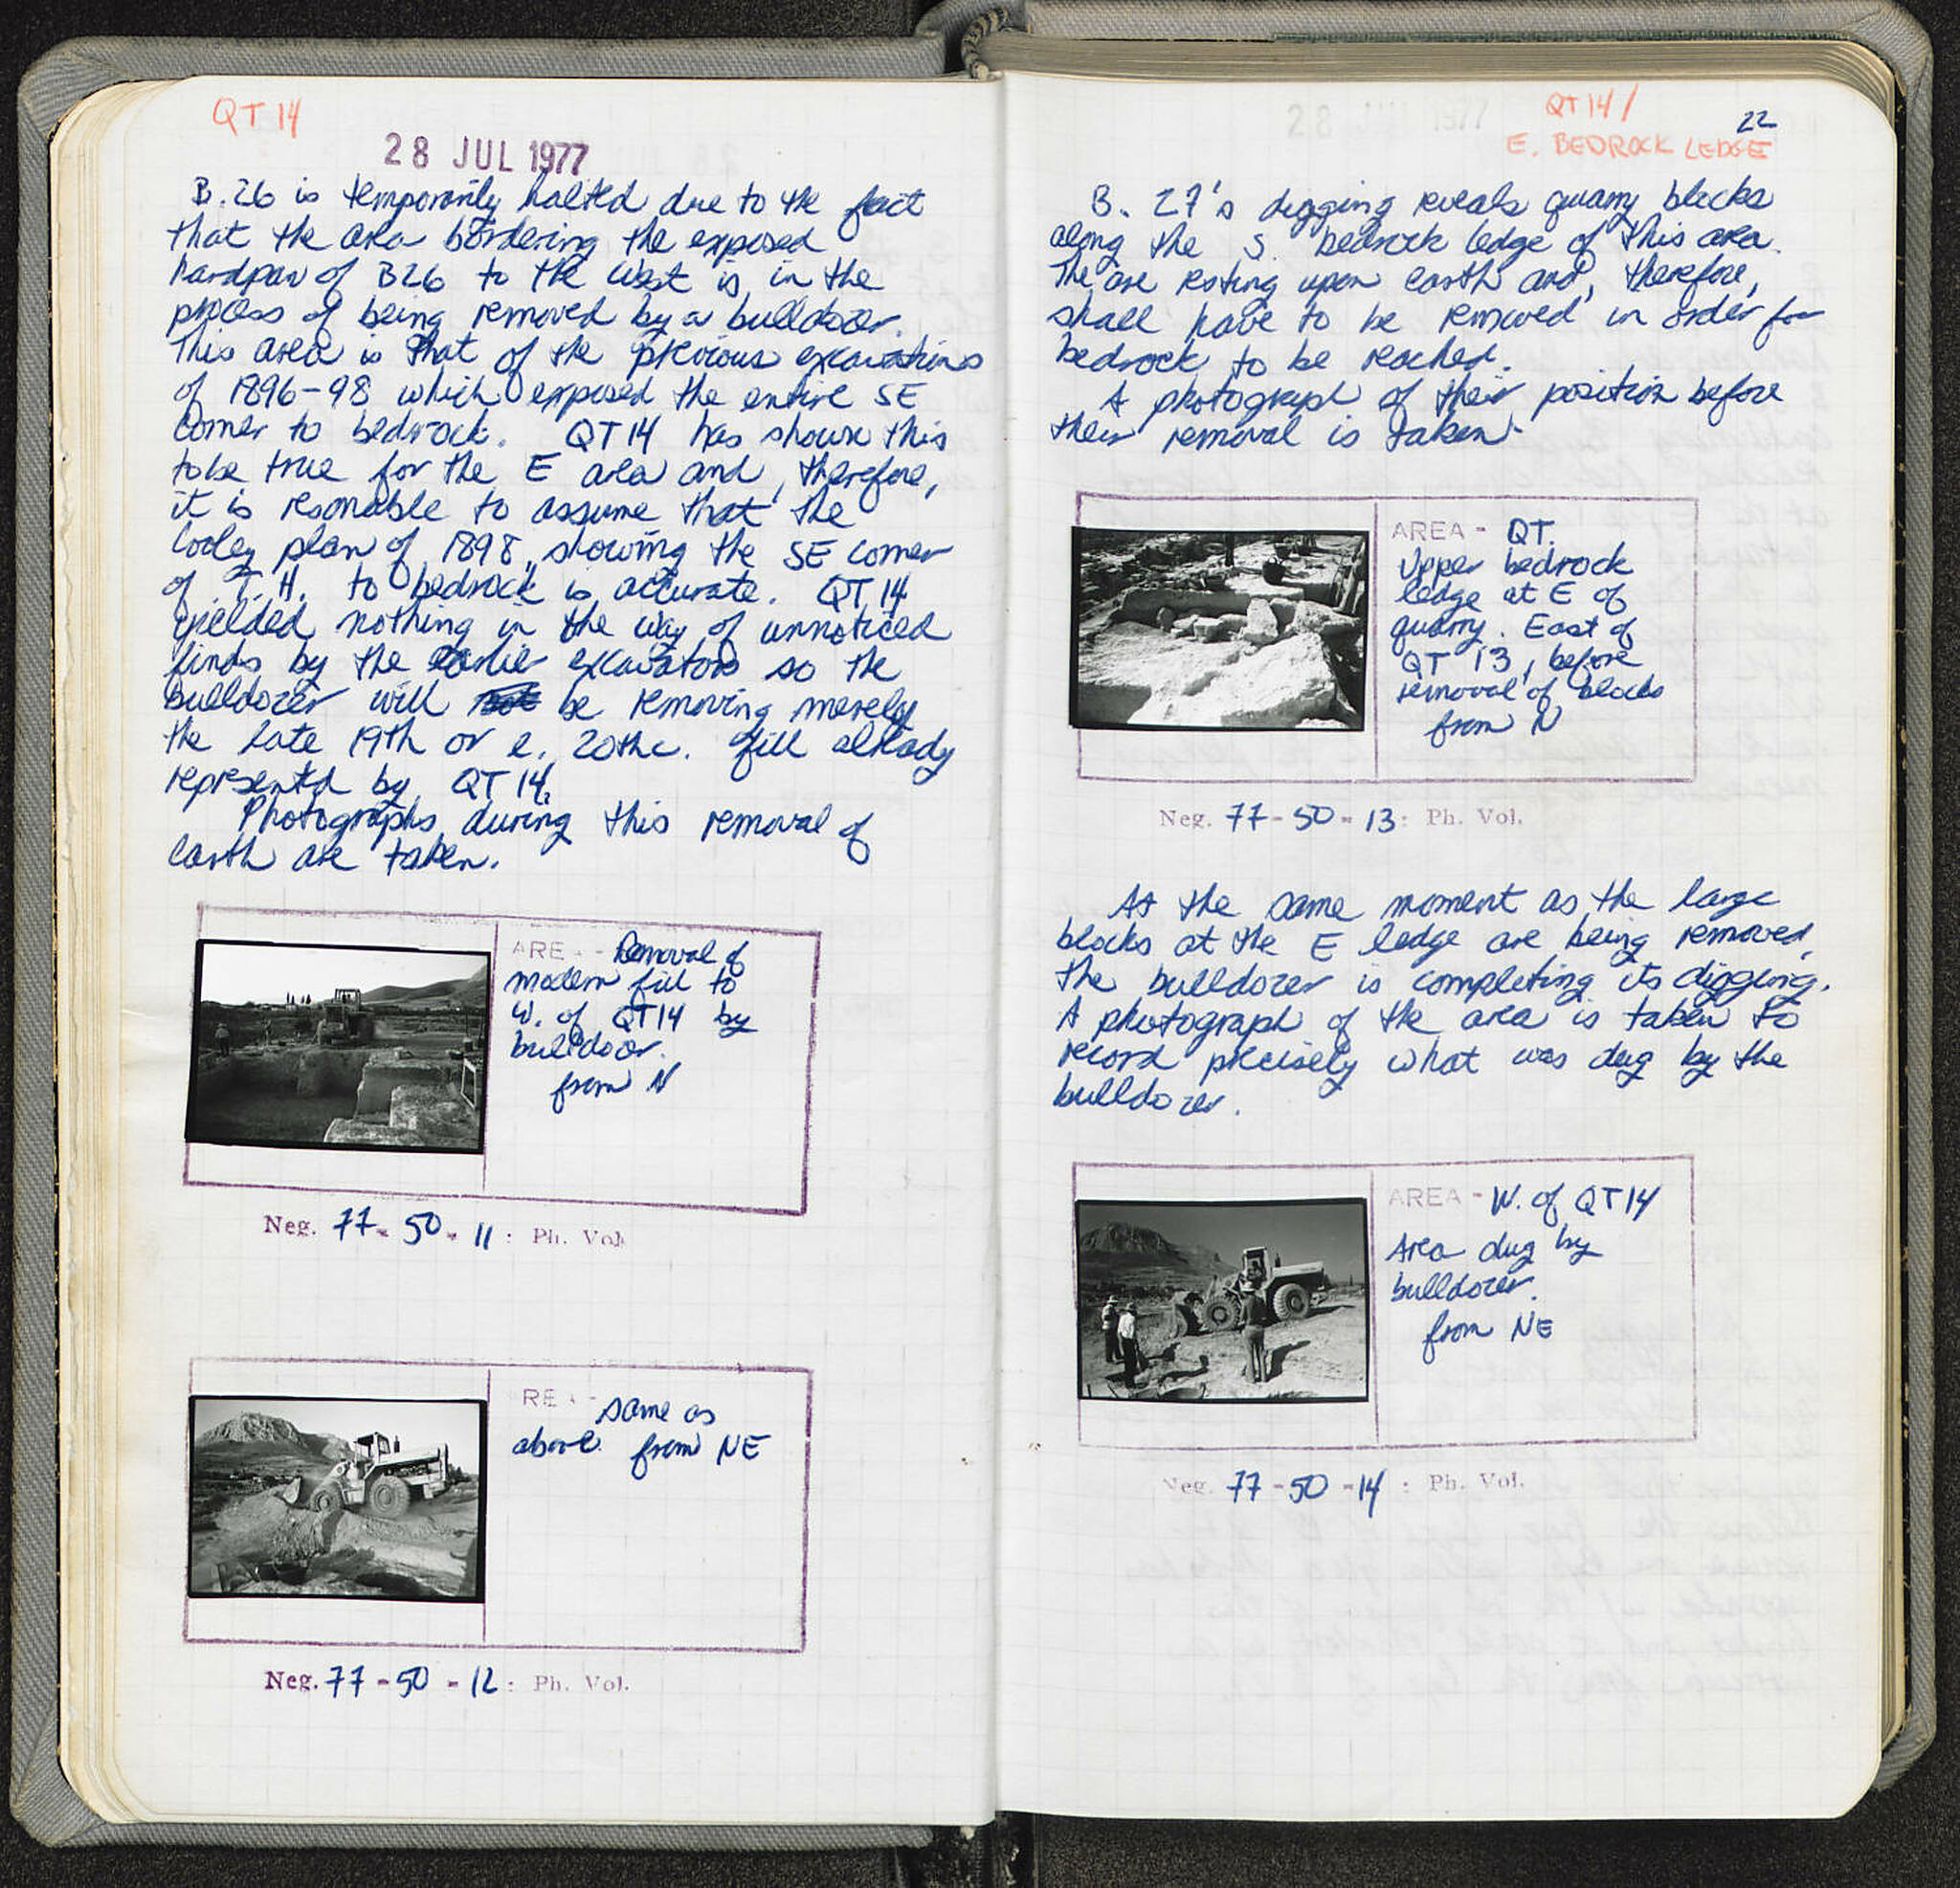 QT 14
28 JUL 1977
B.26 is temporarily halted due to the fact
that the area bordering the exposed
hardpan of B26 to the West is in the
process of being removed by a bulldozer.
This area is that of the previous excavations
of 1896-98 which exposed the entire SE
corner to bedrock. QT14 has shown this
to be true for the E area and, therefore,
it is resonable to assume that the
Cooley plan of 1898, showing the SE corner
of T. H. to bedrock is accurate. QT 14
yielded nothing in the way of unnoticed
finds by the earlier excavators so the
bulldozer will be removing merely
the late 19th or e. 20th c. fill already
represented by QT 14.
Photographs during this removal of
earth are taken.
ARE - Removal of
modern fill to
W. of QT14 by
bulldozer.
from N
Neg. 77-50-11: Ph. Vol.
RE - same as
above. from NE
Neg. 77-50-12: Ph. Vol.
QT 14/
22
E. BEDROCK LEDGE
28 JUL 1977
B. 27's digging reveals quarry blocks
along the S. bedrock ledge of this area.
The are resting upon earth and, therefore,
shall have to be removed in order for
bedrock to be reached.
A photograph of their position before
their removal is taken.
AREA - QT.
Upper bedrock
ledge at E of
quarry. East of
QT 13, before
removal of blocks
from N
Neg. 77-50-13: Ph. Vol.
At the same moment as the large
blocks at the E ledge are being removed,
the bulldozer is completing its digging.
A photograph of the area is taken to
record precisely what was dug by the
bulldozer.
AREA - W. of QT14
Area dug by
bulldozer.
from NE
Neg. 77-50-14: Ph. Vol.